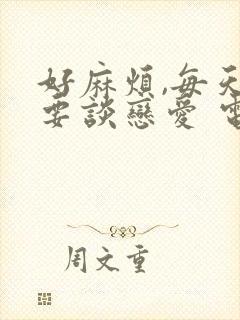 好麻煩,每天
要談戀愛
周文重